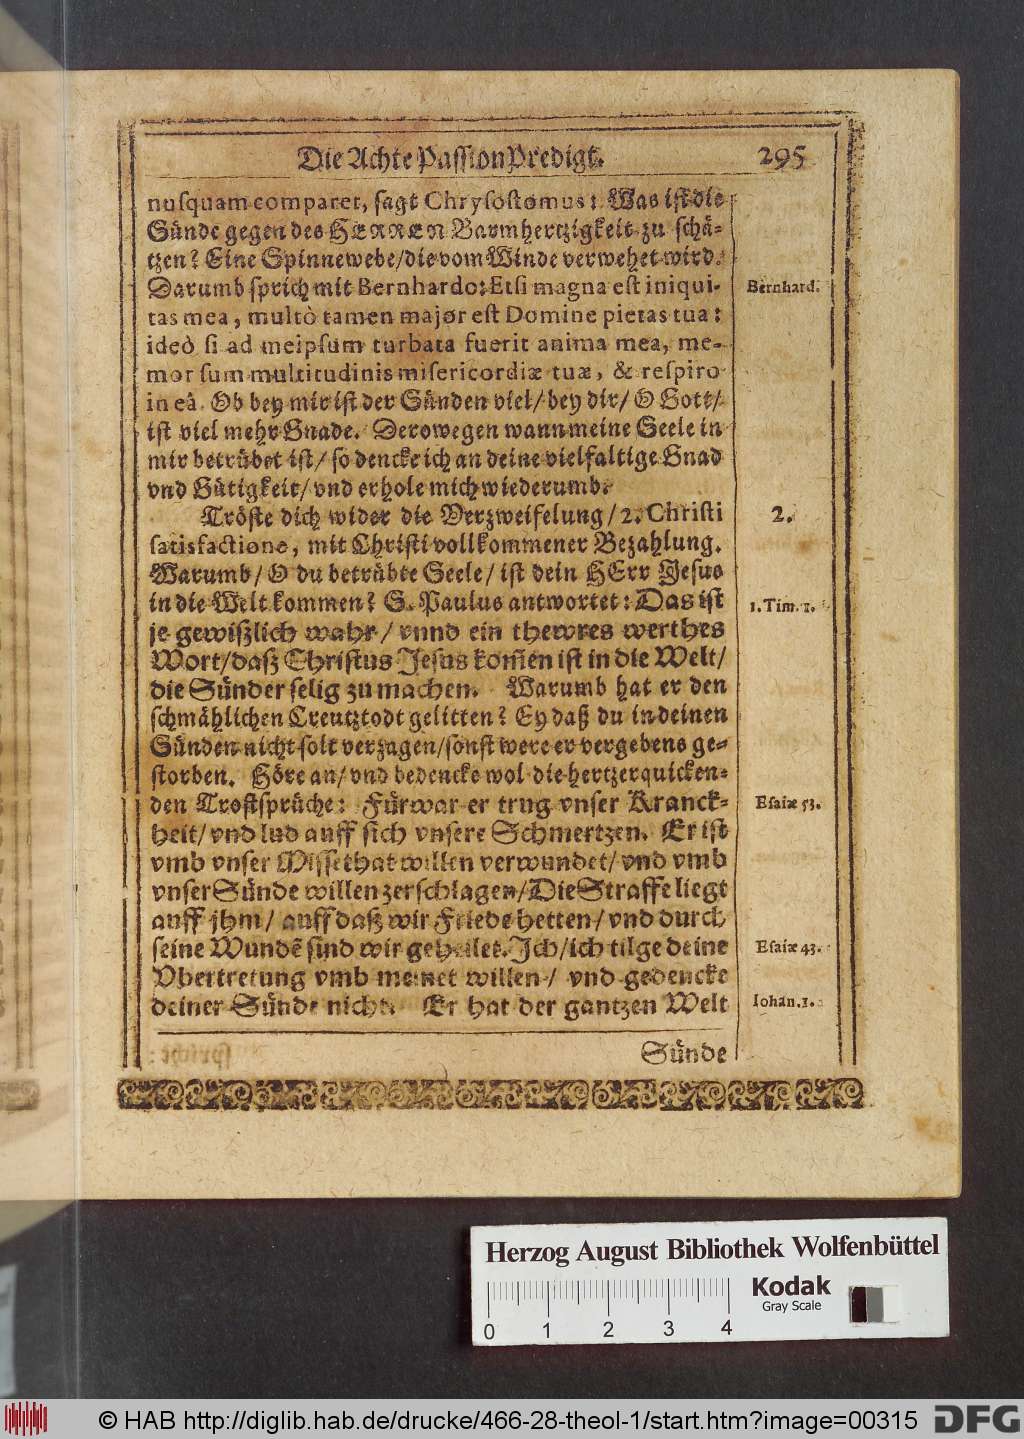 Die Achte Passion Predigt. 295
nusquam comparet, sagt Chrysostomus: Was ist die
Sünde gegen des HERREN Barmhertzigkeit zu schä-
tzen? Eine Spinnewebe/die vom Winde verwehet wird.
Darumb sprich mit Bernhardo: Etsi magna est iniqui-
Bernhard.
tas mea, multò tamen major est Domine pietas tua:
ideò si ad meipsum turbata fuerit anima mea, me-
mor sum multitudinis misericordiæ tuæ, & respiro
in eâ. Ob bey mir ist der Sünden viel/ bey dir/ O Gott/
ist viel mehr Gnade. Derowegen wann meine Seele in
mir betrübet ist/ so dencke ich an deine vielfaltige Gnad
vnd Gütigkeit/ vnd erhole mich wiederumb.
Tröste dich wider die Verzweifelung/ 2. Christi
2.
satisfactione, mit Christi vollkommener Bezahlung.
Warumb/ O du betrübte Seele/ ist dein HErr Jesus
in die Welt kommen? S. Paulus antwortet: Das ist
1. Tim. 1.
je gewißlich wahr/ vnnd ein thewres werthes
Wort/daß Christus Jesus kom̃en ist in die Welt/
die Sünder selig zu machen. Warumb hat er den
schmählichen Creutztodt gelitten? Ey daß du in deinen
Sünden nicht solt verzagen/sonst were er vergebens ge-
storben. Höre an/ vnd bedencke wol die hertzerquicken-
den Trostsprüche: Fürwar er trug vnser Kranck-
Esaiæ 53.
heit/ vnd lud auff sich vnsere Schmertzen. Er ist
vmb vnser Missethat willen verwundet/ vnd vmb
vnser Sünde willen zerschlagen/Die Straffe liegt
auff jhm/ auff daß wir Friede hetten/ vnd durch
seine Wundẽ sind wir geheilet. Ich/ich tilge deine
Esaiæ 43.
Vbertretung vmb meinet willen/ vnd gedencke
deiner Sünde nicht. Er hat der gantzen Welt
Iohan. 1.
Sünde
Herzog August Bibliothek Wolfenbüttel
Kodak
Gray Scale
0 1 2 3 4
© HAB http://diglib.hab.de/drucke/466-28-theol-1/start.htm?image=00315
DFG